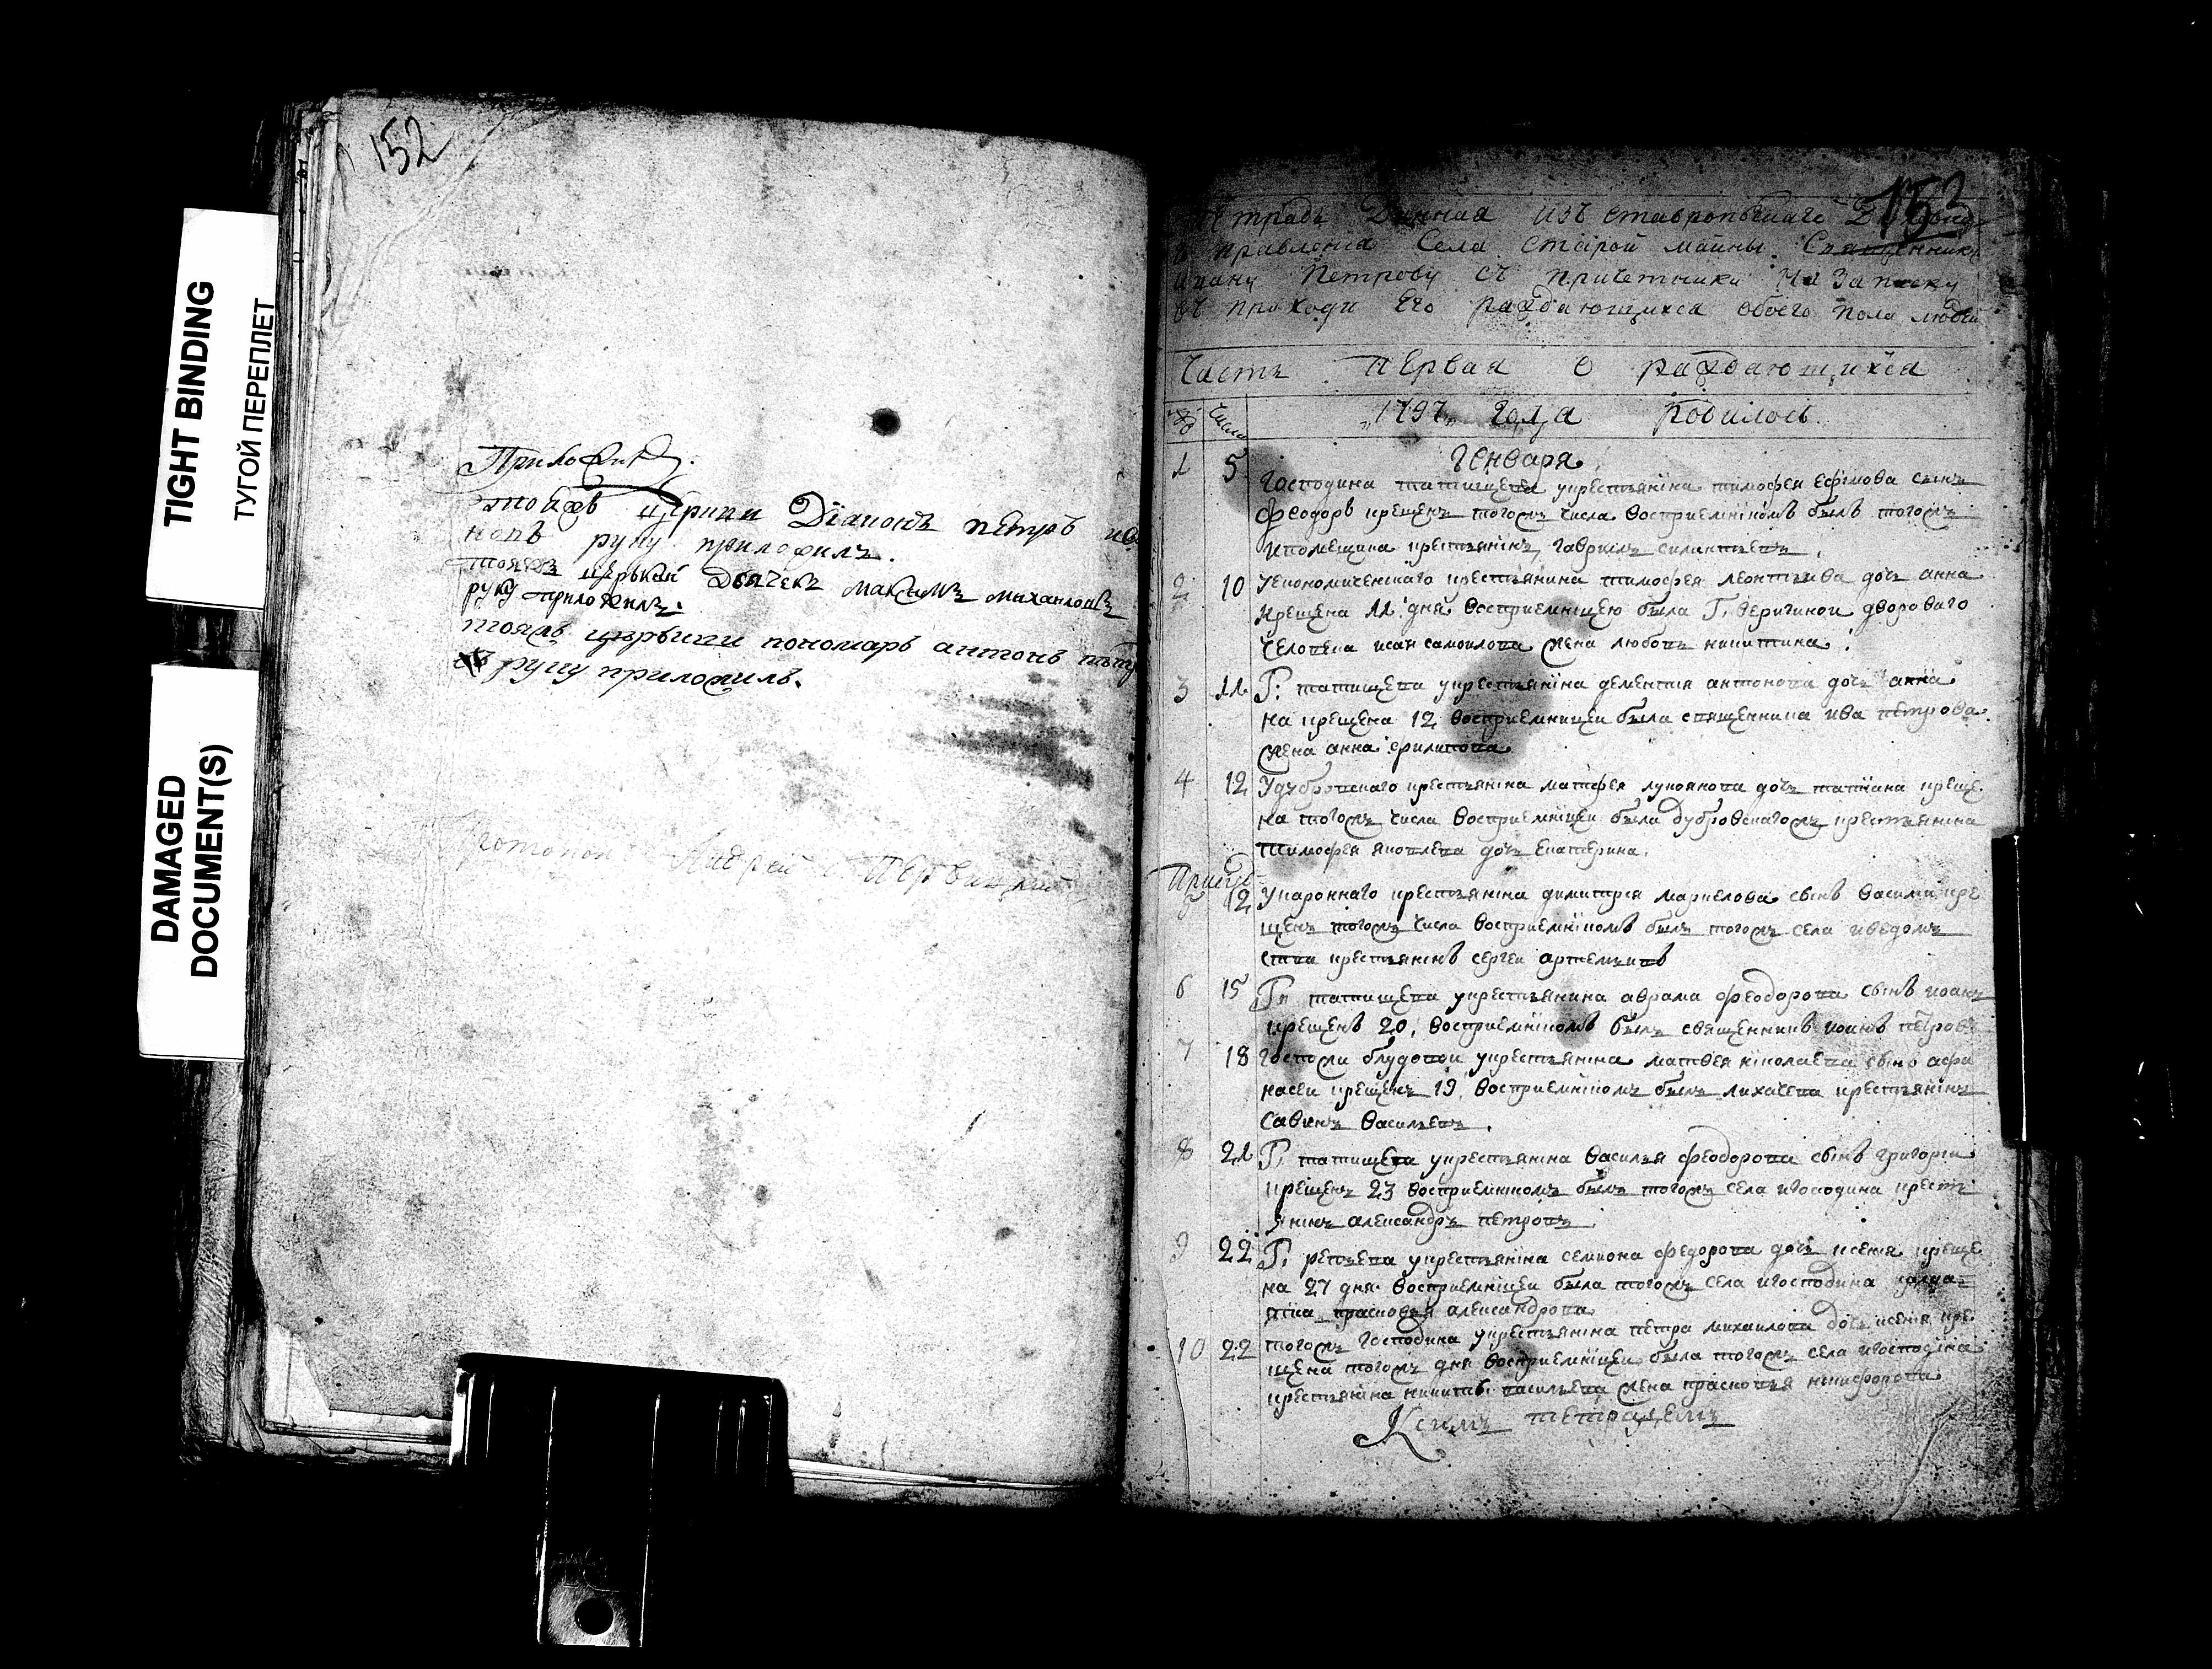 TIGHT BINDING
ТУГОЙ ПЕРЕПЛЕТ
DAMAGED
DOCUMENT(S)
152
Приложилъ.
тойже церкви Діаконъ петръ
новъ руку приложилъ.
тояжъ церькви Дьячекъ максимъ михаиловъ
руку приложилъ.
тояжъ церькви пономарь антонъ
руку приложилъ.
Протопопъ Андрей
153
тетрадь Данная изъ ставропольскаго Духовнаго
правления Села Старой майны Священнику
иоану Петрову съ причетники На Записку
въ приходи Его раждающихся обоего пола людей
Часть первая о раждающихся
число
1797 года родилось
Генваря
1 5 Господина татищева укрестьянина тимофея Ефимова сынъ
феодоръ крещенъ тогожъ числа восприемникомъ былъ тогожъ
ипомещика крестьянинъ гавриилъ силантьевъ.
2 10 Уекономическаго крестьянина тимофея леонтьива дочь анна
крещена 11 дня восприемницею была Г. веригиной дворового
человека исаи самоилова жена любовь никитина.
3 11 Г. татищева укрестьянина дементия антонова дочь анна
на крещена 12 восприемницеи была священника ива петрова
жена анна филипова
4 12 Удубровскаго крестьянина матфея лукоянова дочь татиана креще
на тогожъ числа восприемницеи была дубровскагожъ крестьянина
тимофея яковлева дочь Екатерина.
5 12 димитрея сынъ Василии кре
щенъ тогожъ числа восприемникомъ былъ тогожъ села иведомъ
ства крестьянинъ сергеи артемьивъ
6 15 Гн татищева укрестьянина аврама феодорова сынъ иоанъ
крещенъ 20, восприемникомъ былъ священникъ иоанъ петровъ
7 18 Госпожи блудовои укрестьянина матвея николаева сынъ афа
насеи крещенъ 19, восприемникомъ былъ лихачева крестьянинъ
Савинъ васильевъ.
8 21 Г. татищева укрестьянина василья феодорова сынъ григореи
крещенъ 23 восприемникомъ былъ тогожъ села игосподина кресть
янинъ александръ петровъ.
9 22 Г. репьева укрестьянина семиона федорова дочь ксения креще
на 27 дня восприемницеи была тогожъ села игосподина
прасковья александрова
10 22 тогожъ господина укрестьянина петра михаилова дочь ксения кре
щена тогожъ дня восприемницеи была тогожъ села игосподина
крестьянина никиты васильева жена прасковья никифорова
Ксимъ тетрадемъ